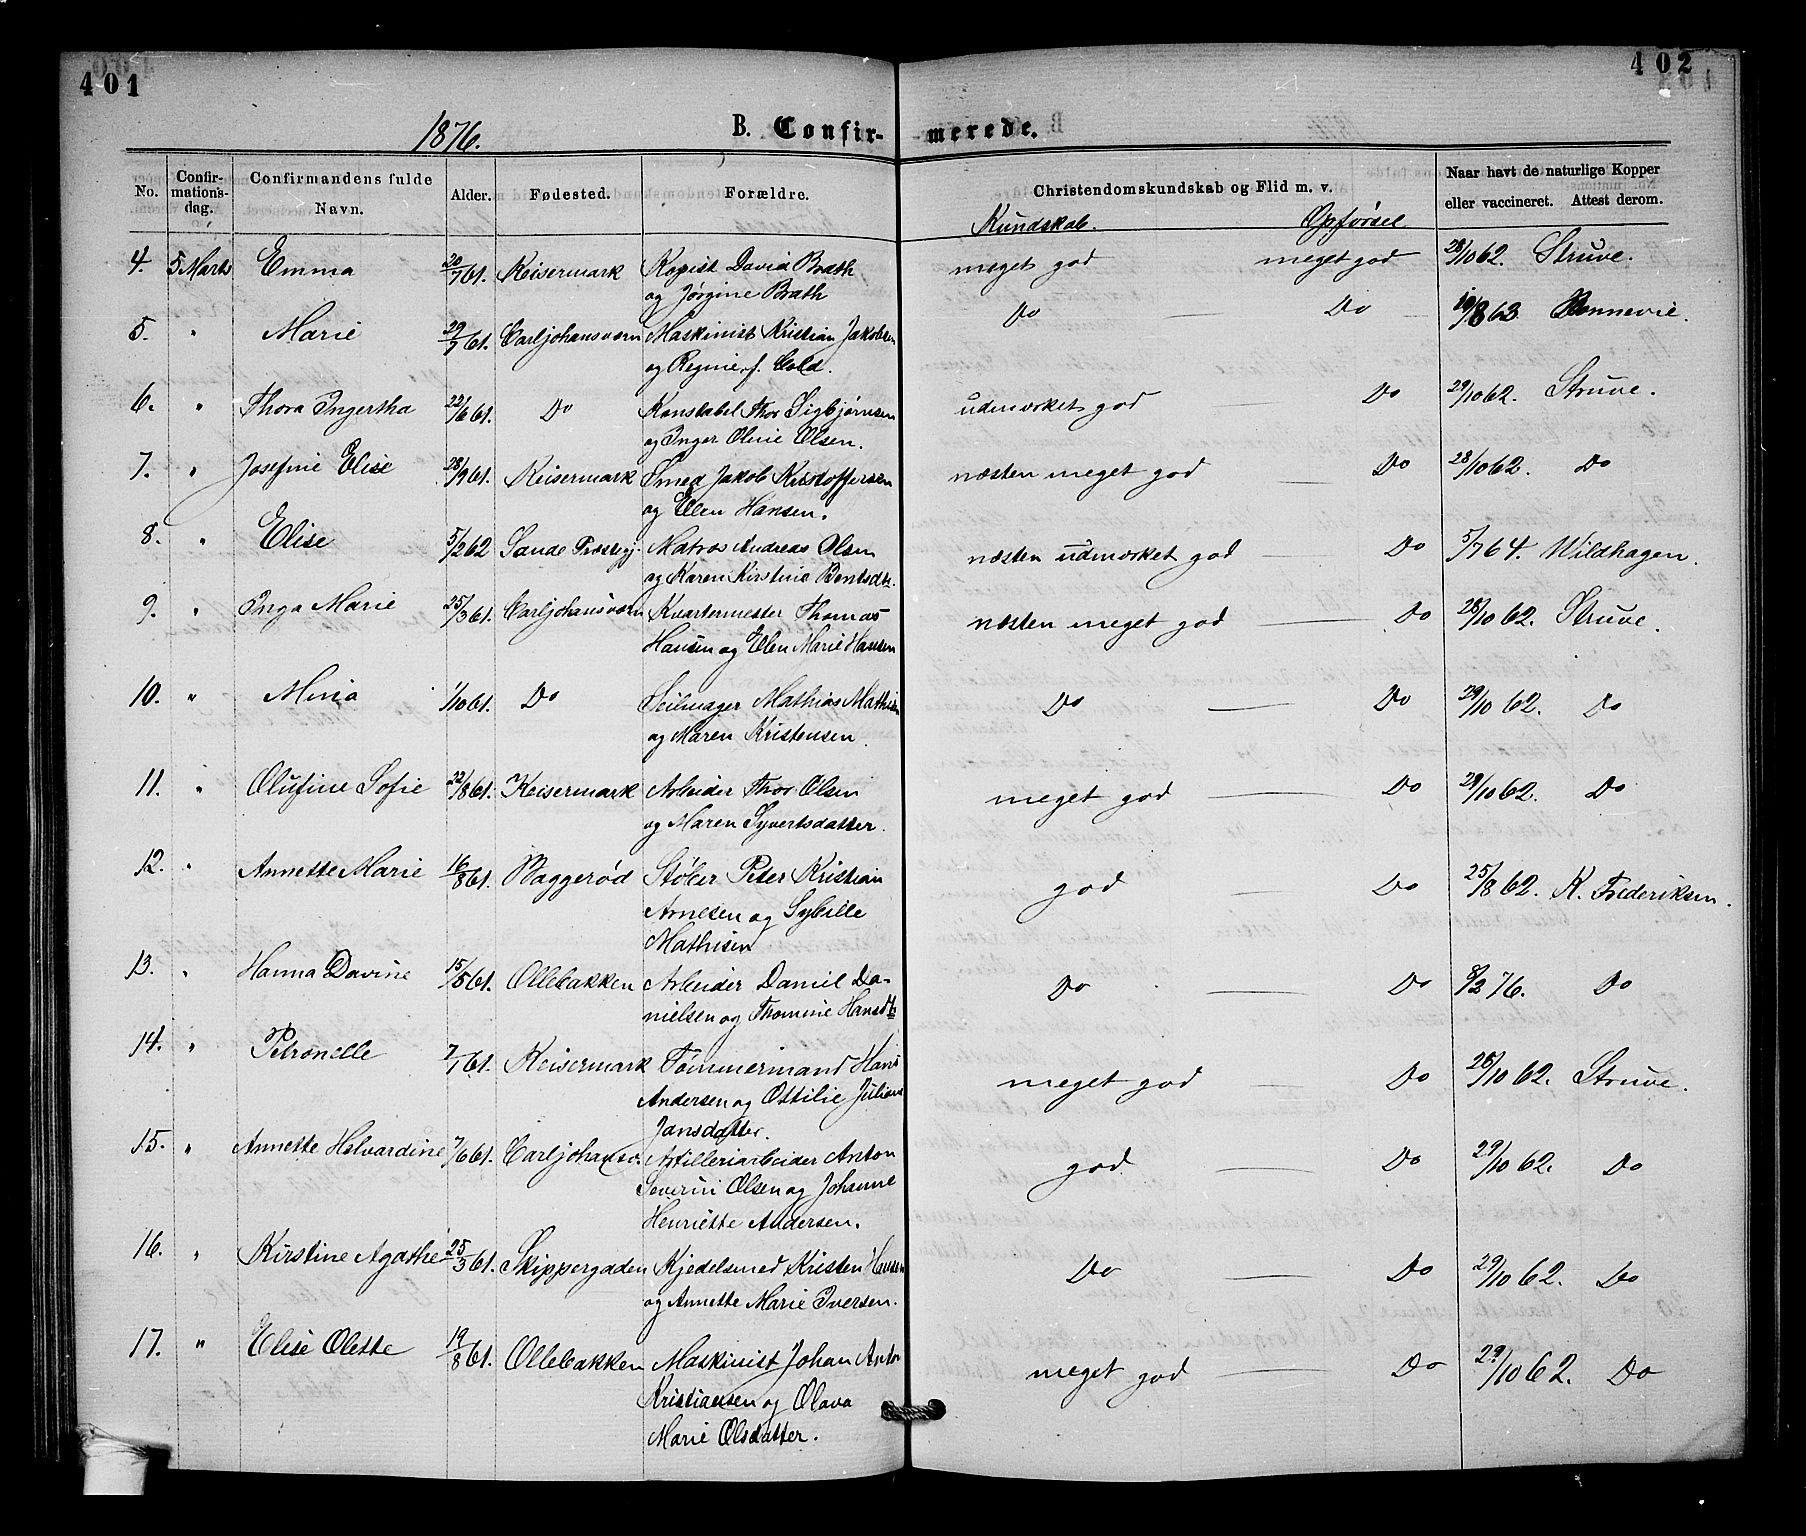 401
402
1876.
B. Confir-
merede.
No. Confir-mations-dag. Confirmandens fulde Navn. Alder. Fødested. Forældre. Christendomskundskab og Flid m. v. Naar havt de naturlige Kopper eller vaccineret. Attest derom.
Kundskab. Opførsel.
4. 5 Marts Emma 20/7 61. Keisermark Kopist David Brath meget god meget god 28/10 62. Struve.
og Jørgine Brath
5. " Marie 29/7 61. Carljohansværn Maskinist Kristian Jakobsen Do Do 19/8 63 Bonnevie.
og Regine, f. Cold.
6. " Thora Ingertha 22/6 61. Do Konstabel Thor Sigbjørnsen udmærket god — Do 29/10 62. Struve.
og Inger Oline Olsen.
7. " Josefine Elise 28/9 61. Keisermark Smed Jakob Kristoffersen næsten meget god Do 28/10 62. Do
og Elen Hansen.
8. " Elise 5/2 62 Sande Præstegj. Matros Andreas Olsen næsten udmærket god — Do 5/7 64. Wildhagen
og Karen Kirstine Bentsdtr.
9. " Inga Marie 25/3 61. Carljohansværn Kvartermester Thomas næsten meget god — Do 28/10 62. Struve.
Hansen og Elen Marie Hansen
10. " Mina 1/10 61. Do Seilmager Mathias Mathisen Do — Do 29/10 62. Do
og Maren Kristensen
11. " Olufine Sofie 22/8 61. Keisermark Arbeider Thor Olsen meget god — Do 29/10 62. Do
og Maren Syvertsdatter.
12. " Annette Marie 16/8 61. Baggerød Støber Peter Kristian god — Do 25/8 62. K. Frederiksen.
Arnesen og Sybille
Mathisen
13. " Hanna Davine 15/5 61. Ollebakken Arbeider Daniel Da- Do — Do 8/2 76. Do
nielsen og Thomine Hansdtr
14. " Petronelle 7/1 61. Keisermark Tømmermand Hans meget god — Do 28/10 62. Struve.
Andersen og Ottilie Juliane
Jansdatter.
15. " Annette Helvardine 7/6 61. Carljohansv. Artilleriarbeider Anton god — Do 29/10 62. Do
Severin Olsen og Johanne
Henriette Andersen.
16. " Kirstine Agathe 25/3 61. Skippergaden Kjedelsmed Kristen Hansen Do — Do 29/10 62. Do
og Annette Marie Iversen.
17. " Elise Olette 19/8 61. Ollebakken Maskinist Johan Anton meget god — Do 29/10 62. Do
Kristiansen og Olava
Marie Olsdatter.